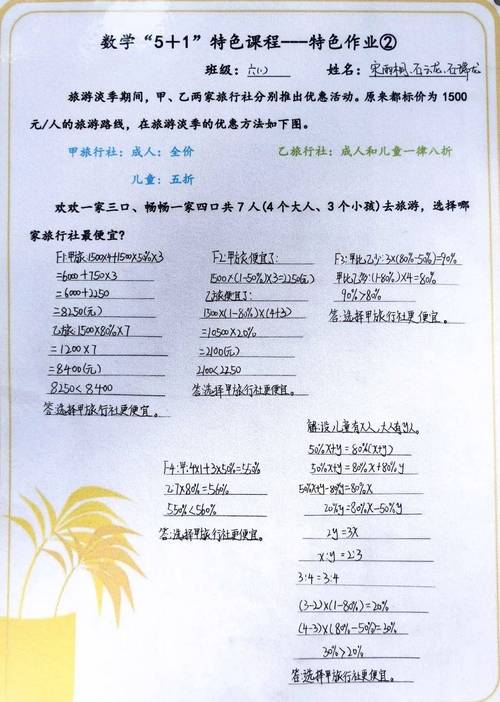 数学“5+1”特色课程---特色作业②
班级：六(1) 姓名：宋雨桐、石云龙、石瑞龙
旅游淡季期间，甲、乙两家旅行社分别推出优惠活动。原来都标价为 1500
元/人的旅游路线，在旅游淡季的优惠方法如下图。
甲旅行社：成人：全价 乙旅行社：成人和儿童一律八折
儿童：五折
欢欢一家三口、畅畅一家四口共 7 人(4 个大人、3 个小孩)去旅游，选择哪
家旅行社最便宜?
F1:甲旅:1500×4+1500×50%×3
=6000+750×3
=6000+2250
=8250(元)
乙旅:1500×80%×7
=1200×7
=8400(元)
8250<8400
答:选择甲旅行社更便宜。
F2:甲旅便宜了:
1500×(1-50%)×3=2250(元)
乙旅便宜了:
1500×(1-80%)×(4+3)
=10500×20%
=2100(元)
2100<2250
答:选择甲旅行社更便宜。
F3:甲比乙少:3×(80%-50%)=90%
甲比乙多:(1-80%)×4=80%
90%>80%
答:选择甲旅行社更便宜。
F4:甲:4×1+3×50%=550%
乙7×80%=560%
550%<560%
答:选择甲旅行社更便宜。
解:设儿童有x人,大人有y人。
50%x+y=80%(x+y)
50%x+y=80%x+80%y
50%x+y-80%y=80%x
20%y=80%x-50%y
2y=3x
x:y=2:3
3:4=3:4
(3-2)×(1-80%)=20%
(4-3)×(80%-50%)=30%
30%>20%
答:选择甲旅行社更便宜。